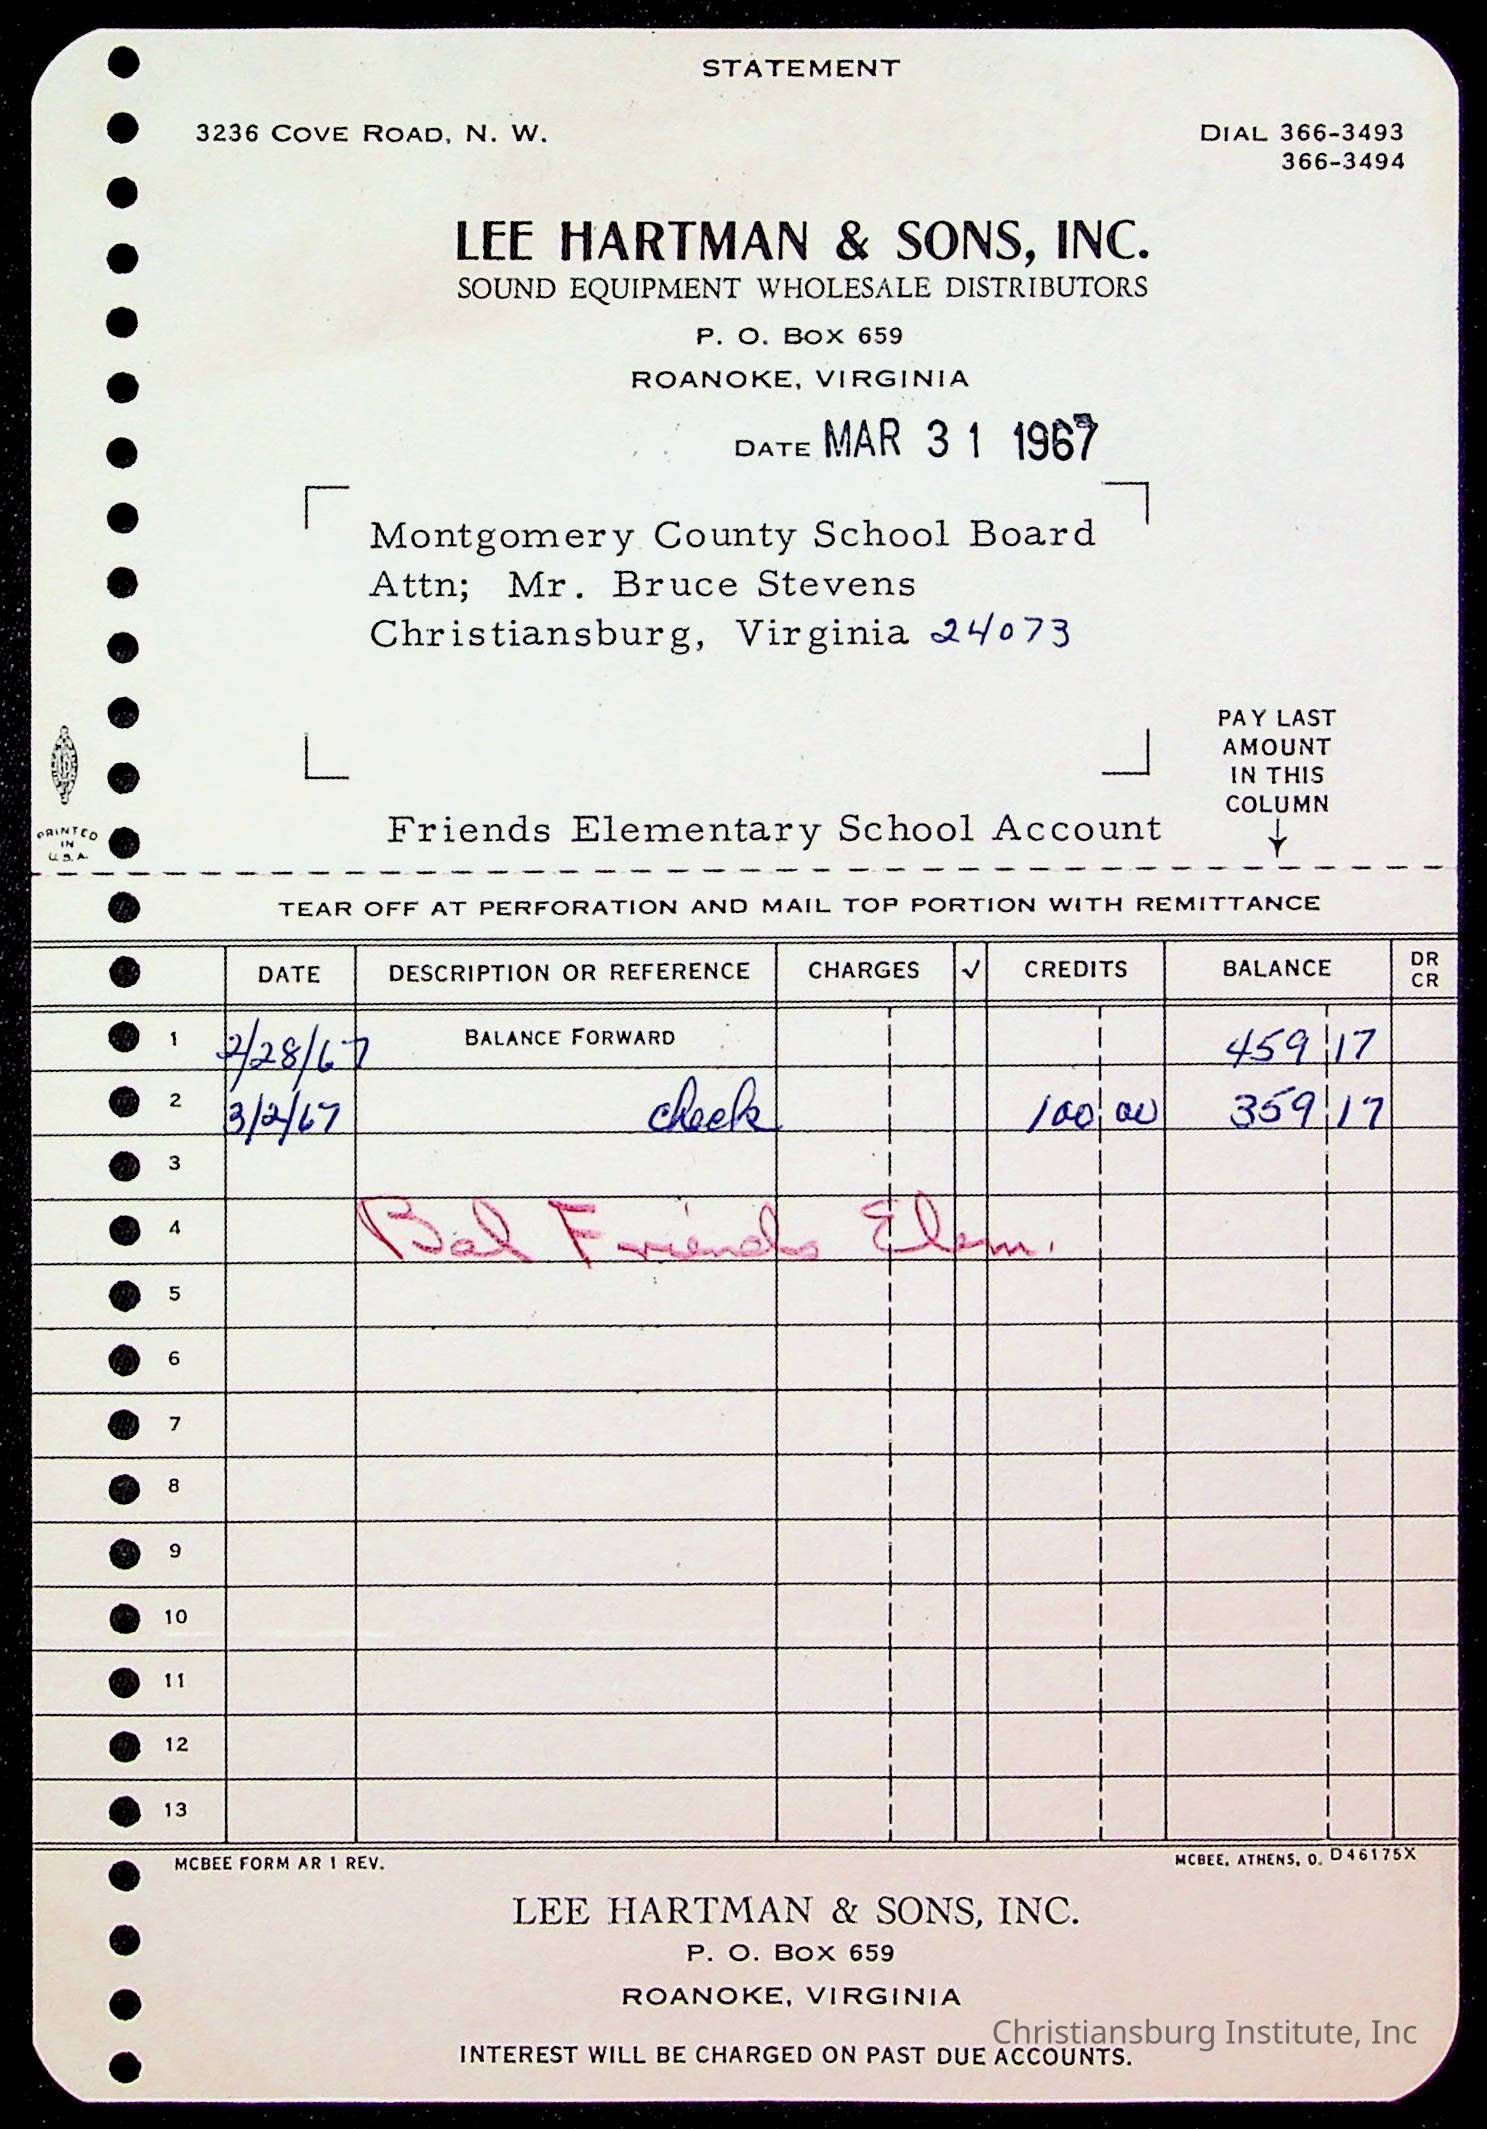 STATEMENT
3236 COVE ROAD, N. W.
DIAL 366-3493
366-3494
LEE HARTMAN & SONS, INC.
SOUND EQUIPMENT WHOLESALE DISTRIBUTORS
P. O. BOX 659
ROANOKE, VIRGINIA
DATE MAR 31 1967
Montgomery County School Board
Attn; Mr. Bruce Stevens
Christiansburg, Virginia 24073
PAY LAST
AMOUNT
IN THIS
COLUMN
PRINTED
IN
U.S.A.
Friends Elementary School Account
TEAR OFF AT PERFORATION AND MAIL TOP PORTION WITH REMITTANCE
DATE DESCRIPTION OR REFERENCE CHARGES ✓ CREDITS BALANCE DR CR
1 2/28/67 BALANCE FORWARD 459 17
2 3/2/67 check 100 00 359 17
3
4 Bal Friends Elem.
5
6
7
8
9
10
11
12
13
MCBEE FORM AR 1 REV. MCBEE, ATHENS, O. D46175X
LEE HARTMAN & SONS, INC.
P. O. BOX 659
ROANOKE, VIRGINIA
Christiansburg Institute, Inc
INTEREST WILL BE CHARGED ON PAST DUE ACCOUNTS.